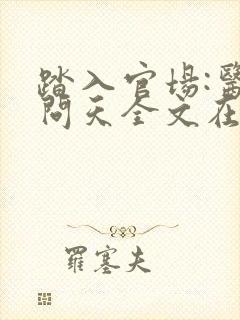 踏入官場:醫
問天全文在
羅塞夫